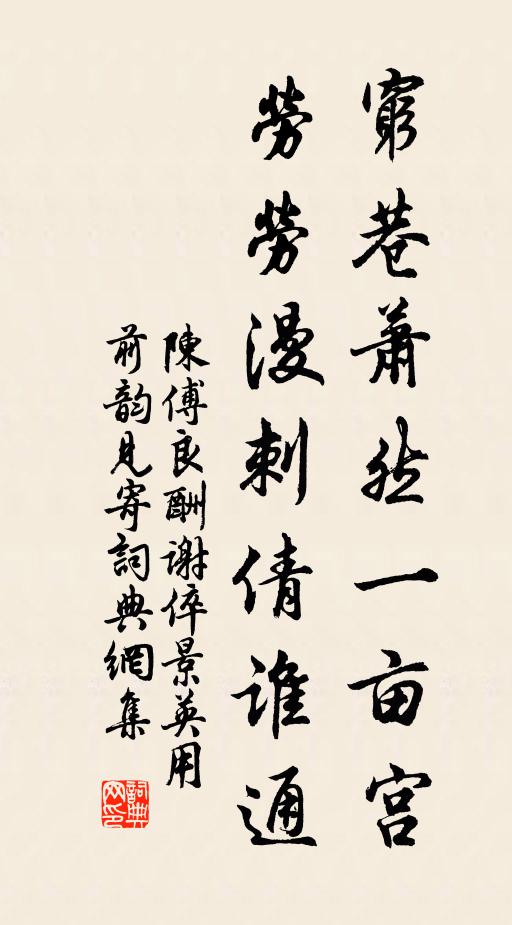 窮巷蕭然一亩宫
勞勞漫刺倩誰通
陳傅良酬谢倅景英用
前韵見寄詞典網集
詞典网印